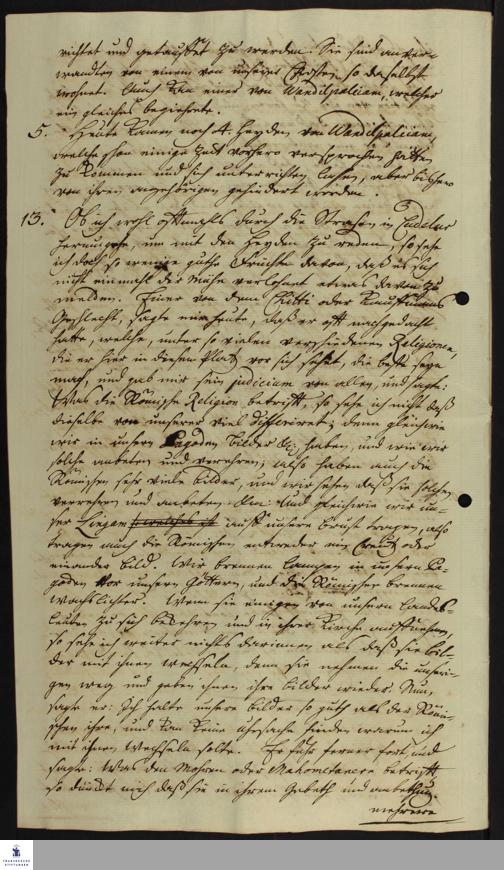 richtet und getauffet zu werden. Sie sind anver-
wandten von einem von unsern Christen, so daselbst
wohnet. Auch kam einer von Wandipaleiam, welcher
ein gleiches begehrete.
5. Heute kamen noch 4. Heyden von Wandipaleiam,
welche schon einige Zeit vorhero versprochen hatten
zu kommen und sich unterrichten lassen, aber bishero
von ihren angehörigen gehindert worden.
13. Ob ich wohl offtmahls durch die Strassen in Cudelur
herumgehe, um mit den Heyden zu reden, so sehe
ich doch so wenige gute Früchte davon, daß es sich
nicht einmahl der Mühe verlohnet etwas davon zu
melden. Einer von dem Chitti oder Kauffmanns
Geschlecht, sagte mir heute, daß er offt nachgedacht
hätte, welche, unter so vielen verschiedenen Religionen,
die er hier in diesem Platz vor sich sehet, die beste seyn
mag, und gab mir sein judicium von allen, und sagte:
Was die Römische Religion betrifft, so sehe ich nicht daß
dieselbe von unserer viel differiret; denn gleichwie
wir in unsern Pagoden Bilder haben, und wie wir
solche anbeten und verehren; also haben auch die
Römischen sehr viele Bilder, und wir sehen daß sie solche
verehren und anbeten. Und gleichwie wir un-
ser Lingam auff unsere Brust tragen, also
tragen auch die Römischen entweder ein Creutz oder
ein ander Bild. Wir brennen Lampen in unsern Pa-
goden vor unsern Göttern, und die Römischen brennen
Wachslichter. Wenn sie einigen von unsern Lands-
Leuten zu sich bekehren und in ihrer Kirche auffnehmen,
so sehe ich weiter nichts darinnen als daß sie Bil-
der mit ihnen wechseln, denn sie nehmen die unsri-
gen weg und geben ihnen ihre Bilder wieder. Nun,
sagte er: Ich halte unsere Bilder so guth als der Römi-
schen ihre, und kan keine Uhrsache finden warum ich
mit ihnen wechseln solte. Er fuhr ferner fort und
sagte: Was den Mohren oder Mahometaner betrifft,
so dünckt mich daß sie in ihrem Gebeth und anbethung
mehrere
FRANCKESCHE
STIFTUNGEN